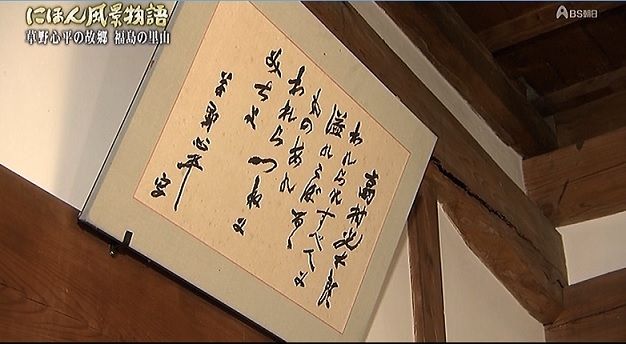 にほん風景物語
草野心平の故郷 福島の里山
BS朝日
高村光太郎
われらのすべてに
溢れ
ものあれ
われらつねに
みちよ
草野心平